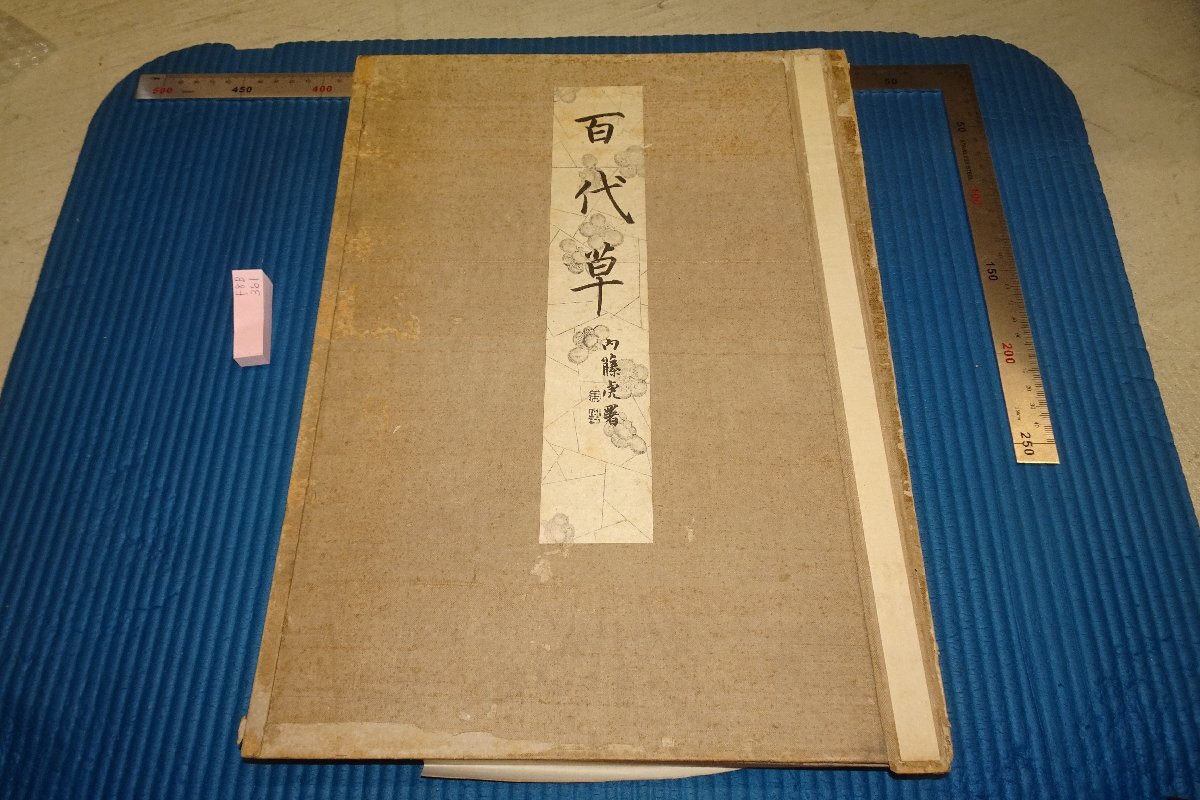 百代草
内藤虎署
f8B
361
500
450
400
50
50
100
150
200
250